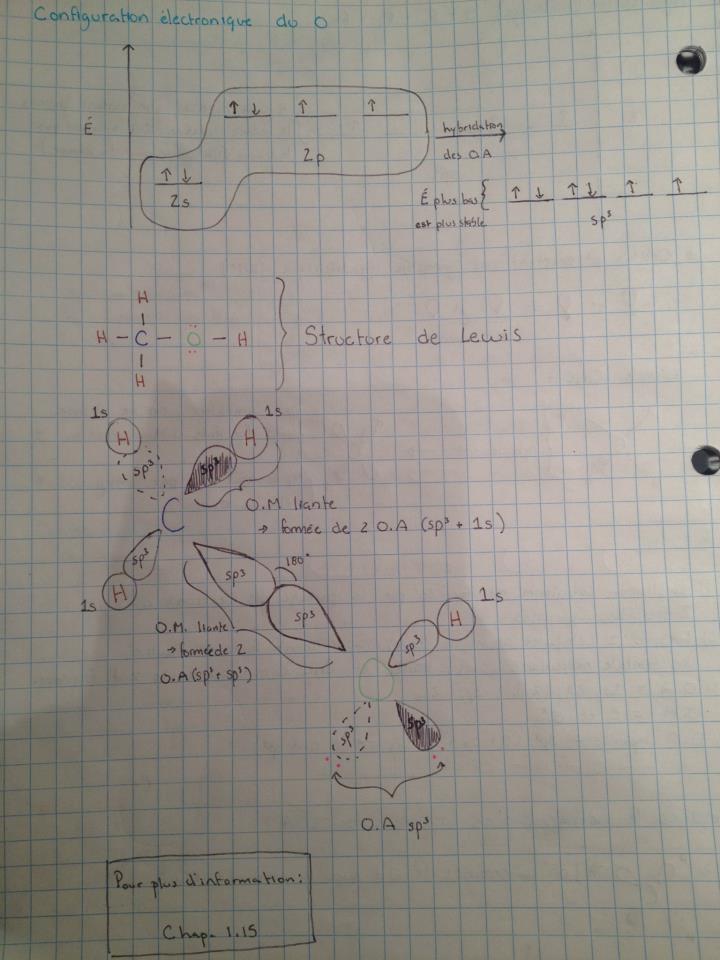 Configuration électronique du O
É
↑ ↓ ↑ ↑
2p
↑ ↓
2s
hybridation
des O.A
É plus bas { ↑ ↓ ↑ ↓ ↑ ↑
est plus stable
sp³
H
H - C - O - H
H
Structure de Lewis
1s
H
sp³
1s
H
sp³
C
O.M liante
→ formée de 2 O.A (sp³ + 1s)
sp³
H
1s
180°
sp³
sp³
O.M. liante
→ formée de 2
O.A (sp³ + sp³)
1s
H
sp³
O
sp³
sp³
O.A sp³
Pour plus d'information:
Chap. 1.15